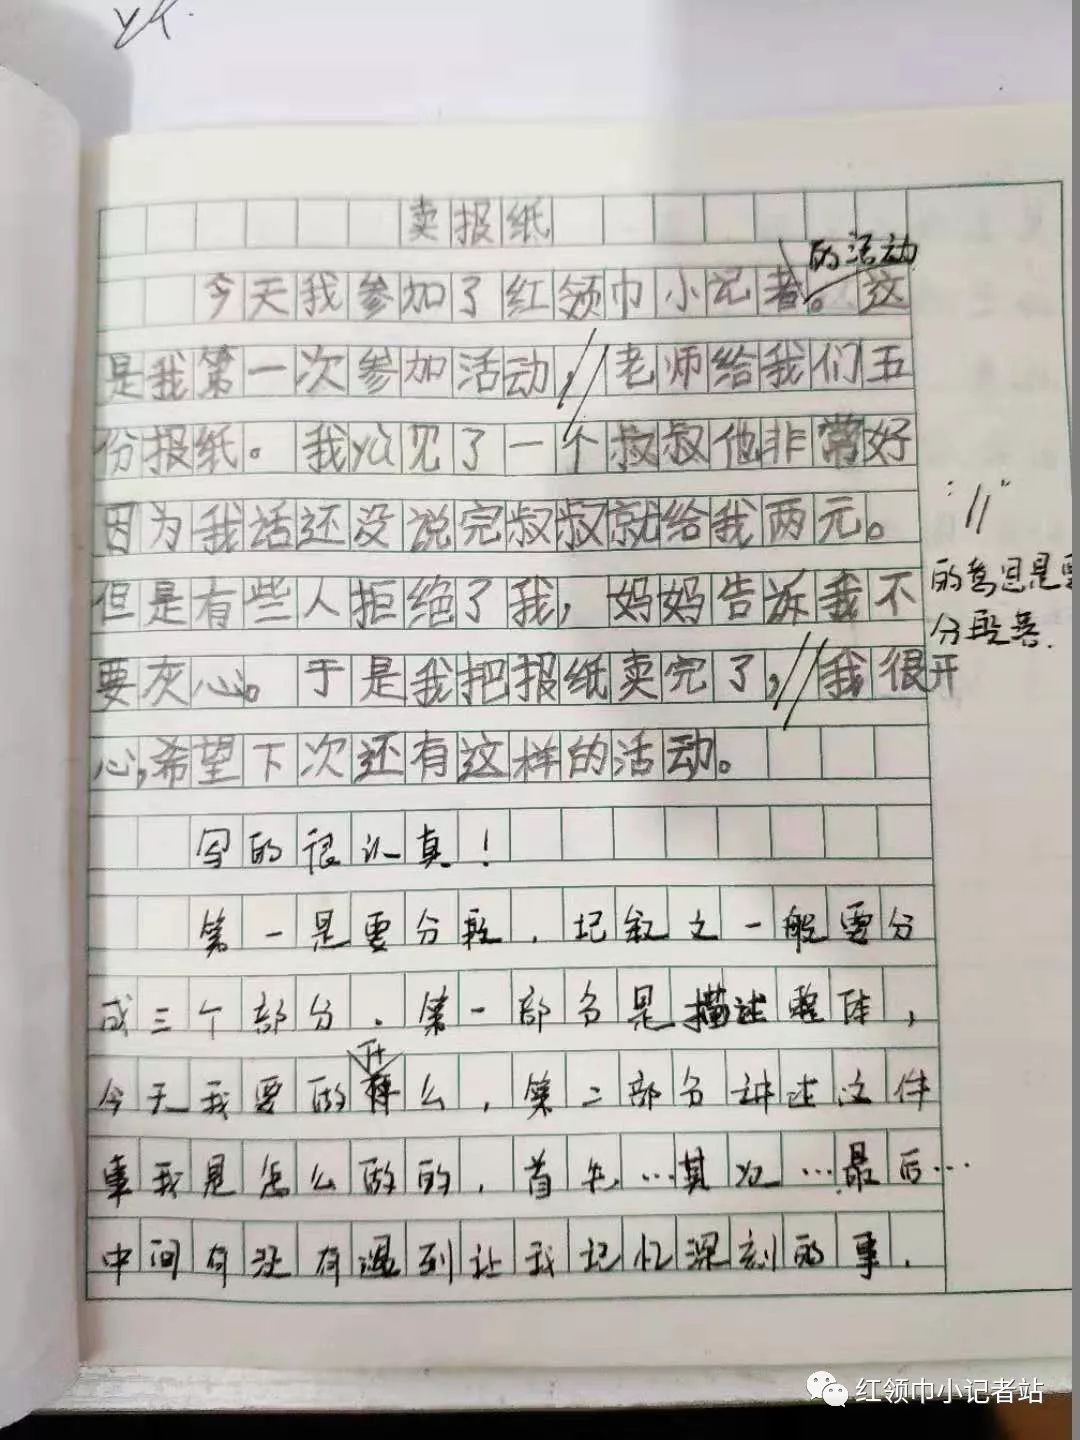 卖报纸
的活动
今天我参加了红领巾小记者。这
是我第一次参加活动,//老师给我们五
份报纸。我yù见了一个叔叔他非常好
因为我话还没说完叔叔就给我两元。
但是有些人拒绝了我,妈妈告诉我不
要灰心。于是我把报纸卖完了,//我很开
心,希望下次还有这样的活动。
"//"
的意思是要
分段落.
写的很认真!
第一是要分段,记叙文一般要分
成三个部分.第一部分是描述整体,
今天我要做什么,第二部分讲述这件
事我是怎么做的,首先…其次…最后…
中间有没有遇到让我记忆深刻的事.
红领巾小记者站